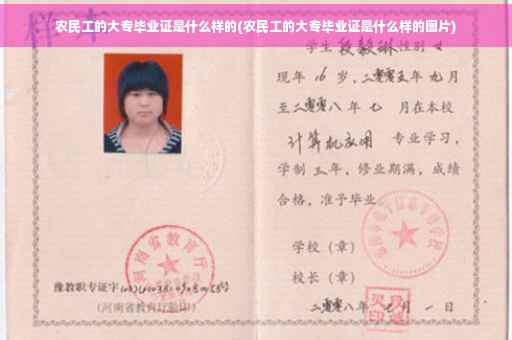 农民工的大专毕业证是什么样的(农民工的大专毕业证是什么样的图片)
样本
学生段毅琳性别女
现年16岁，二零零五年九月
至二零零八年七月在本校
计算机应用 专业学习，
学制三年，修业期满，成绩
合格，准予毕业。
学校（章）
校长（章）
二零零八年七月一日
河南省教育厅
豫教职专证字
（河南省教育厅验印）